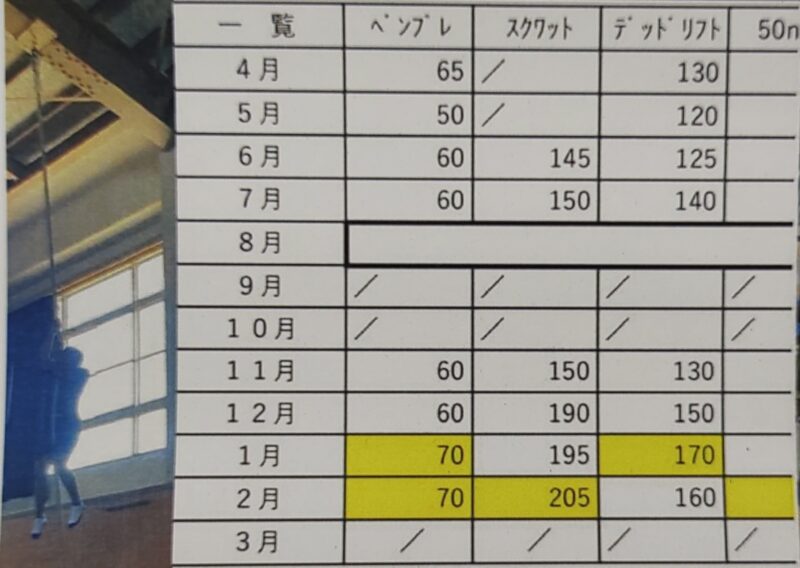 一 覧 ﾍﾞﾝﾌﾟﾚ ｽｸﾜｯﾄ ﾃﾞｯﾄﾞﾘﾌﾄ 50
4月 65 ／ 130
5月 50 ／ 120
6月 60 145 125
7月 60 150 140
8月
9月 ／ ／ ／ ／
10月 ／ ／ ／ ／
11月 60 150 130
12月 60 190 150
1月 70 195 170
2月 70 205 160
3月 ／ ／ ／ ／